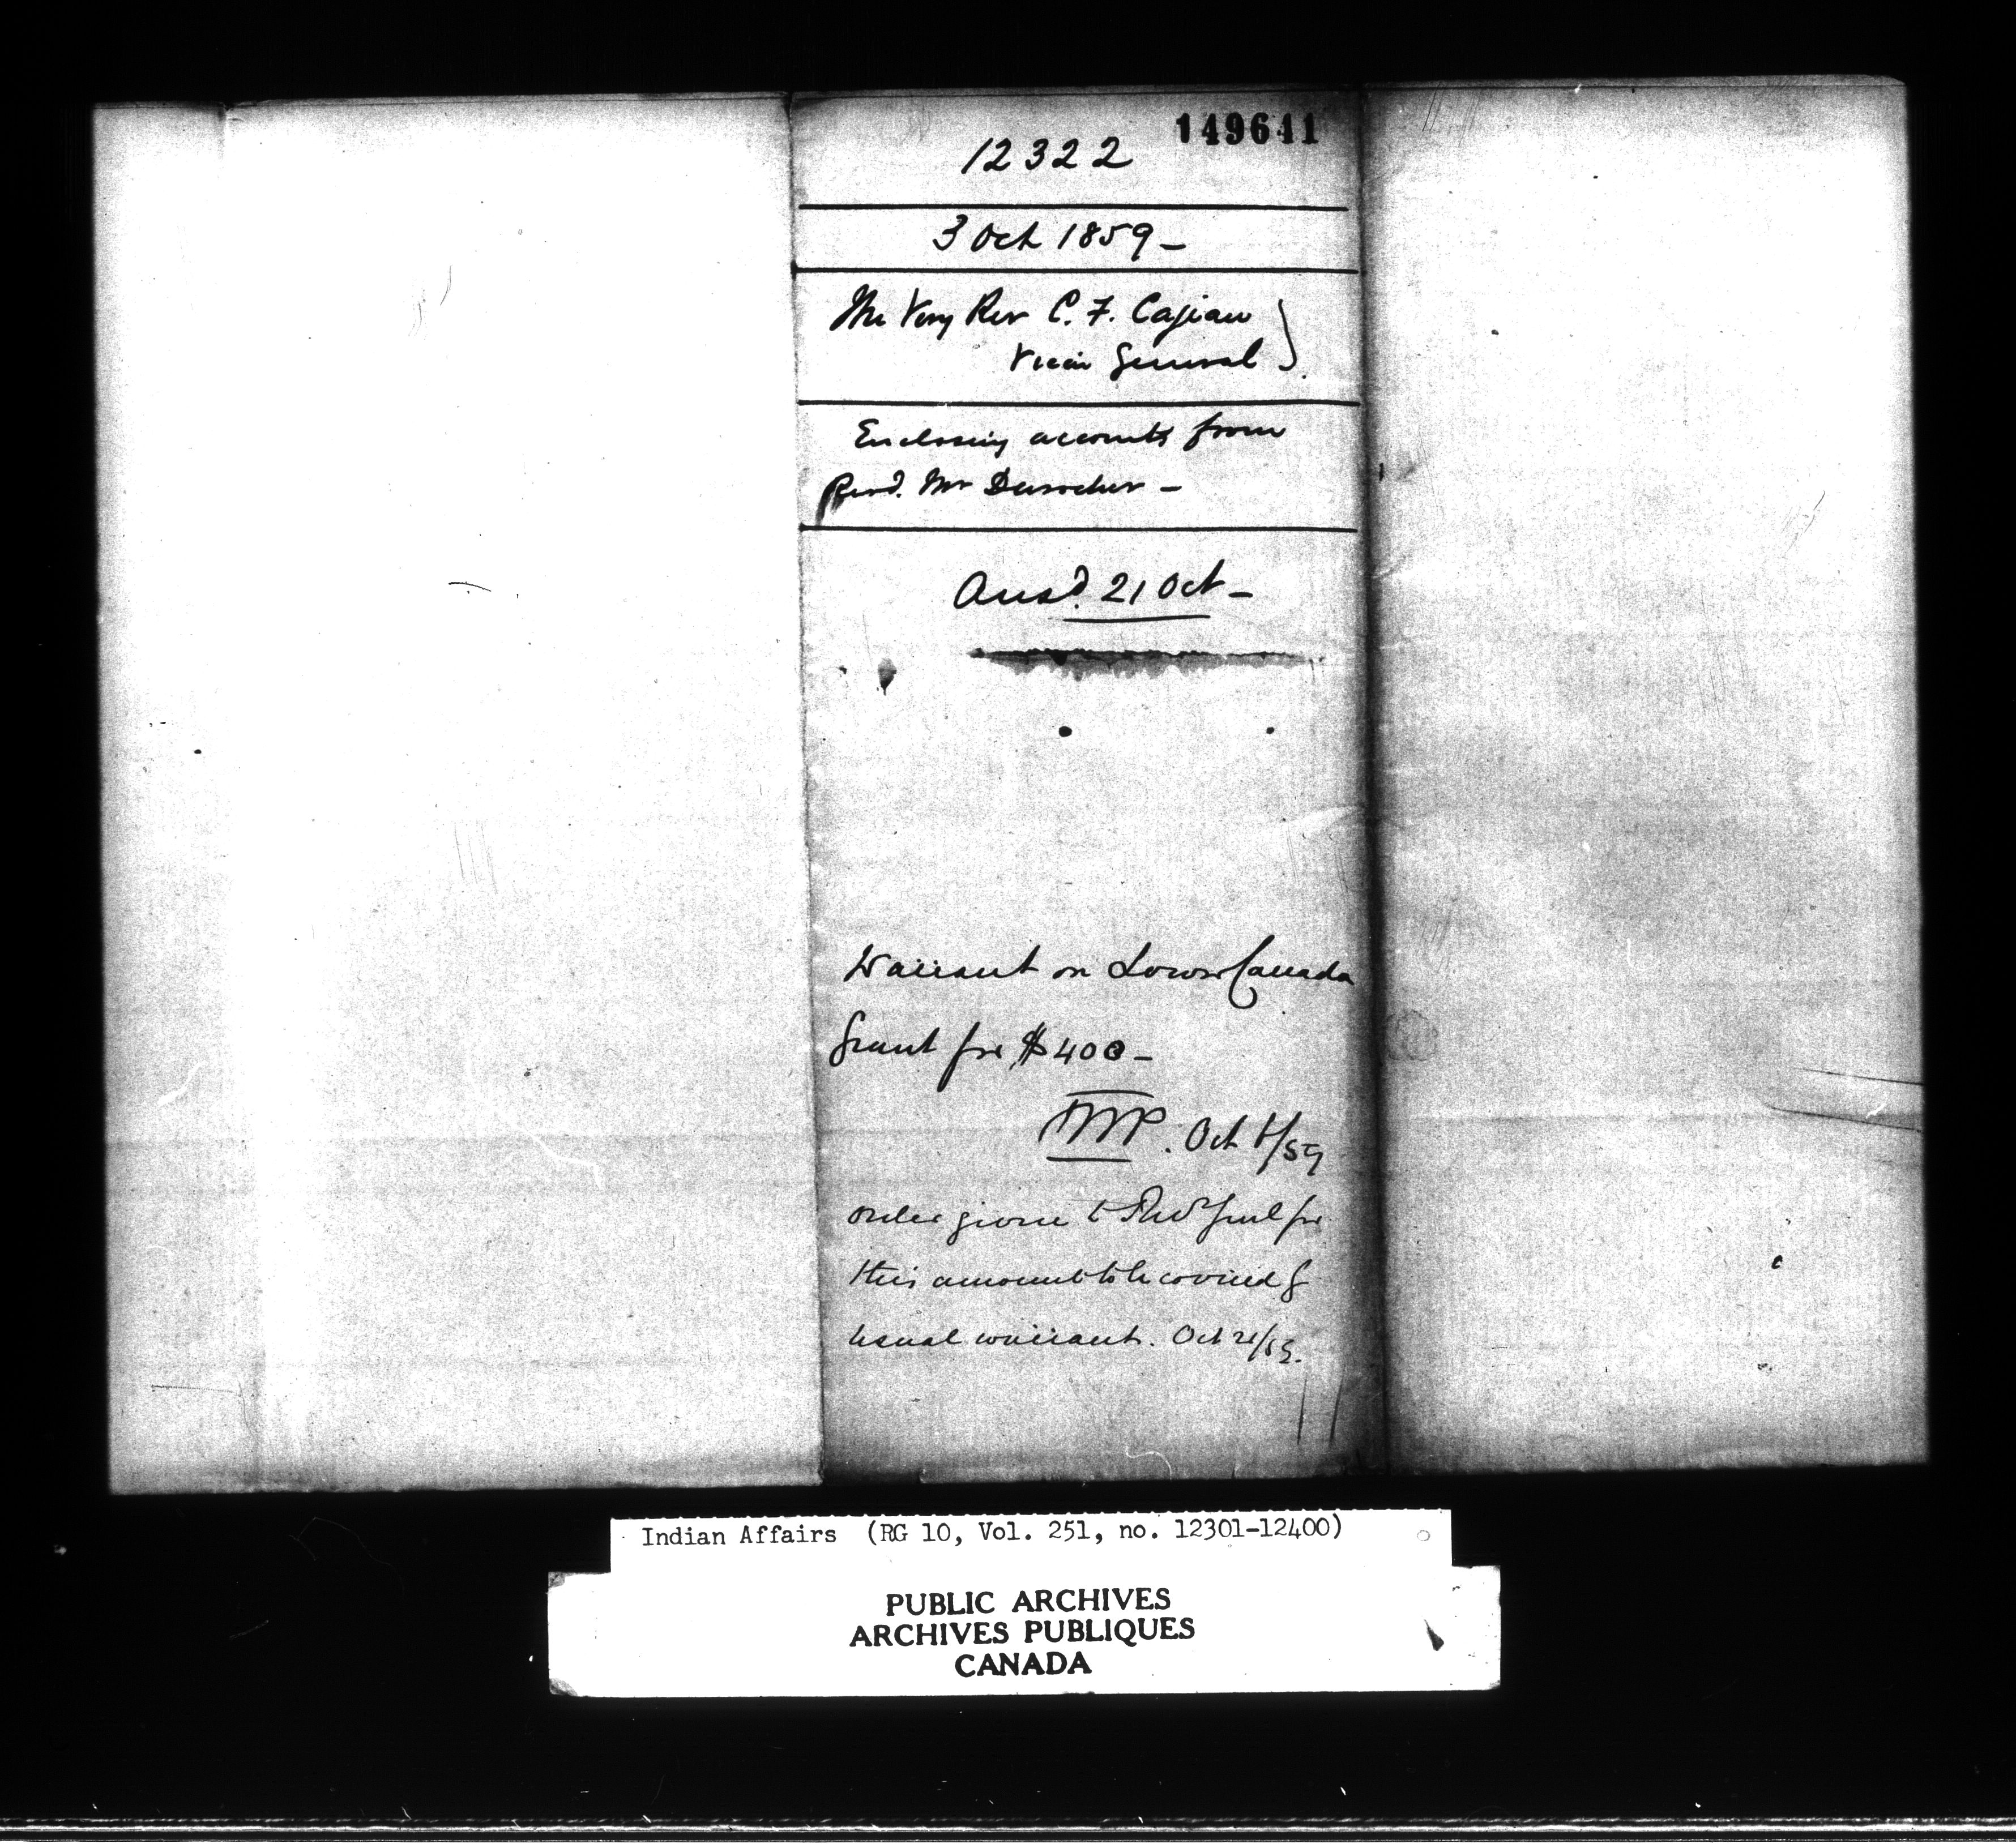 149641
12322
3 Oct 1859 -
The Very Rev C. F. Cazeau
Vicar General
Enclosing accounts from
Revd. Mr Durocher -
Ansd. 21 Oct -
Warrant on Lower Canada
Grant for $400 -
Oct /59
order given to for
this amount to be covered by
usual warrant. Oct 21/59.
Indian Affairs (RG 10, Vol. 251, no. 12301-12400)
PUBLIC ARCHIVES
ARCHIVES PUBLIQUES
CANADA